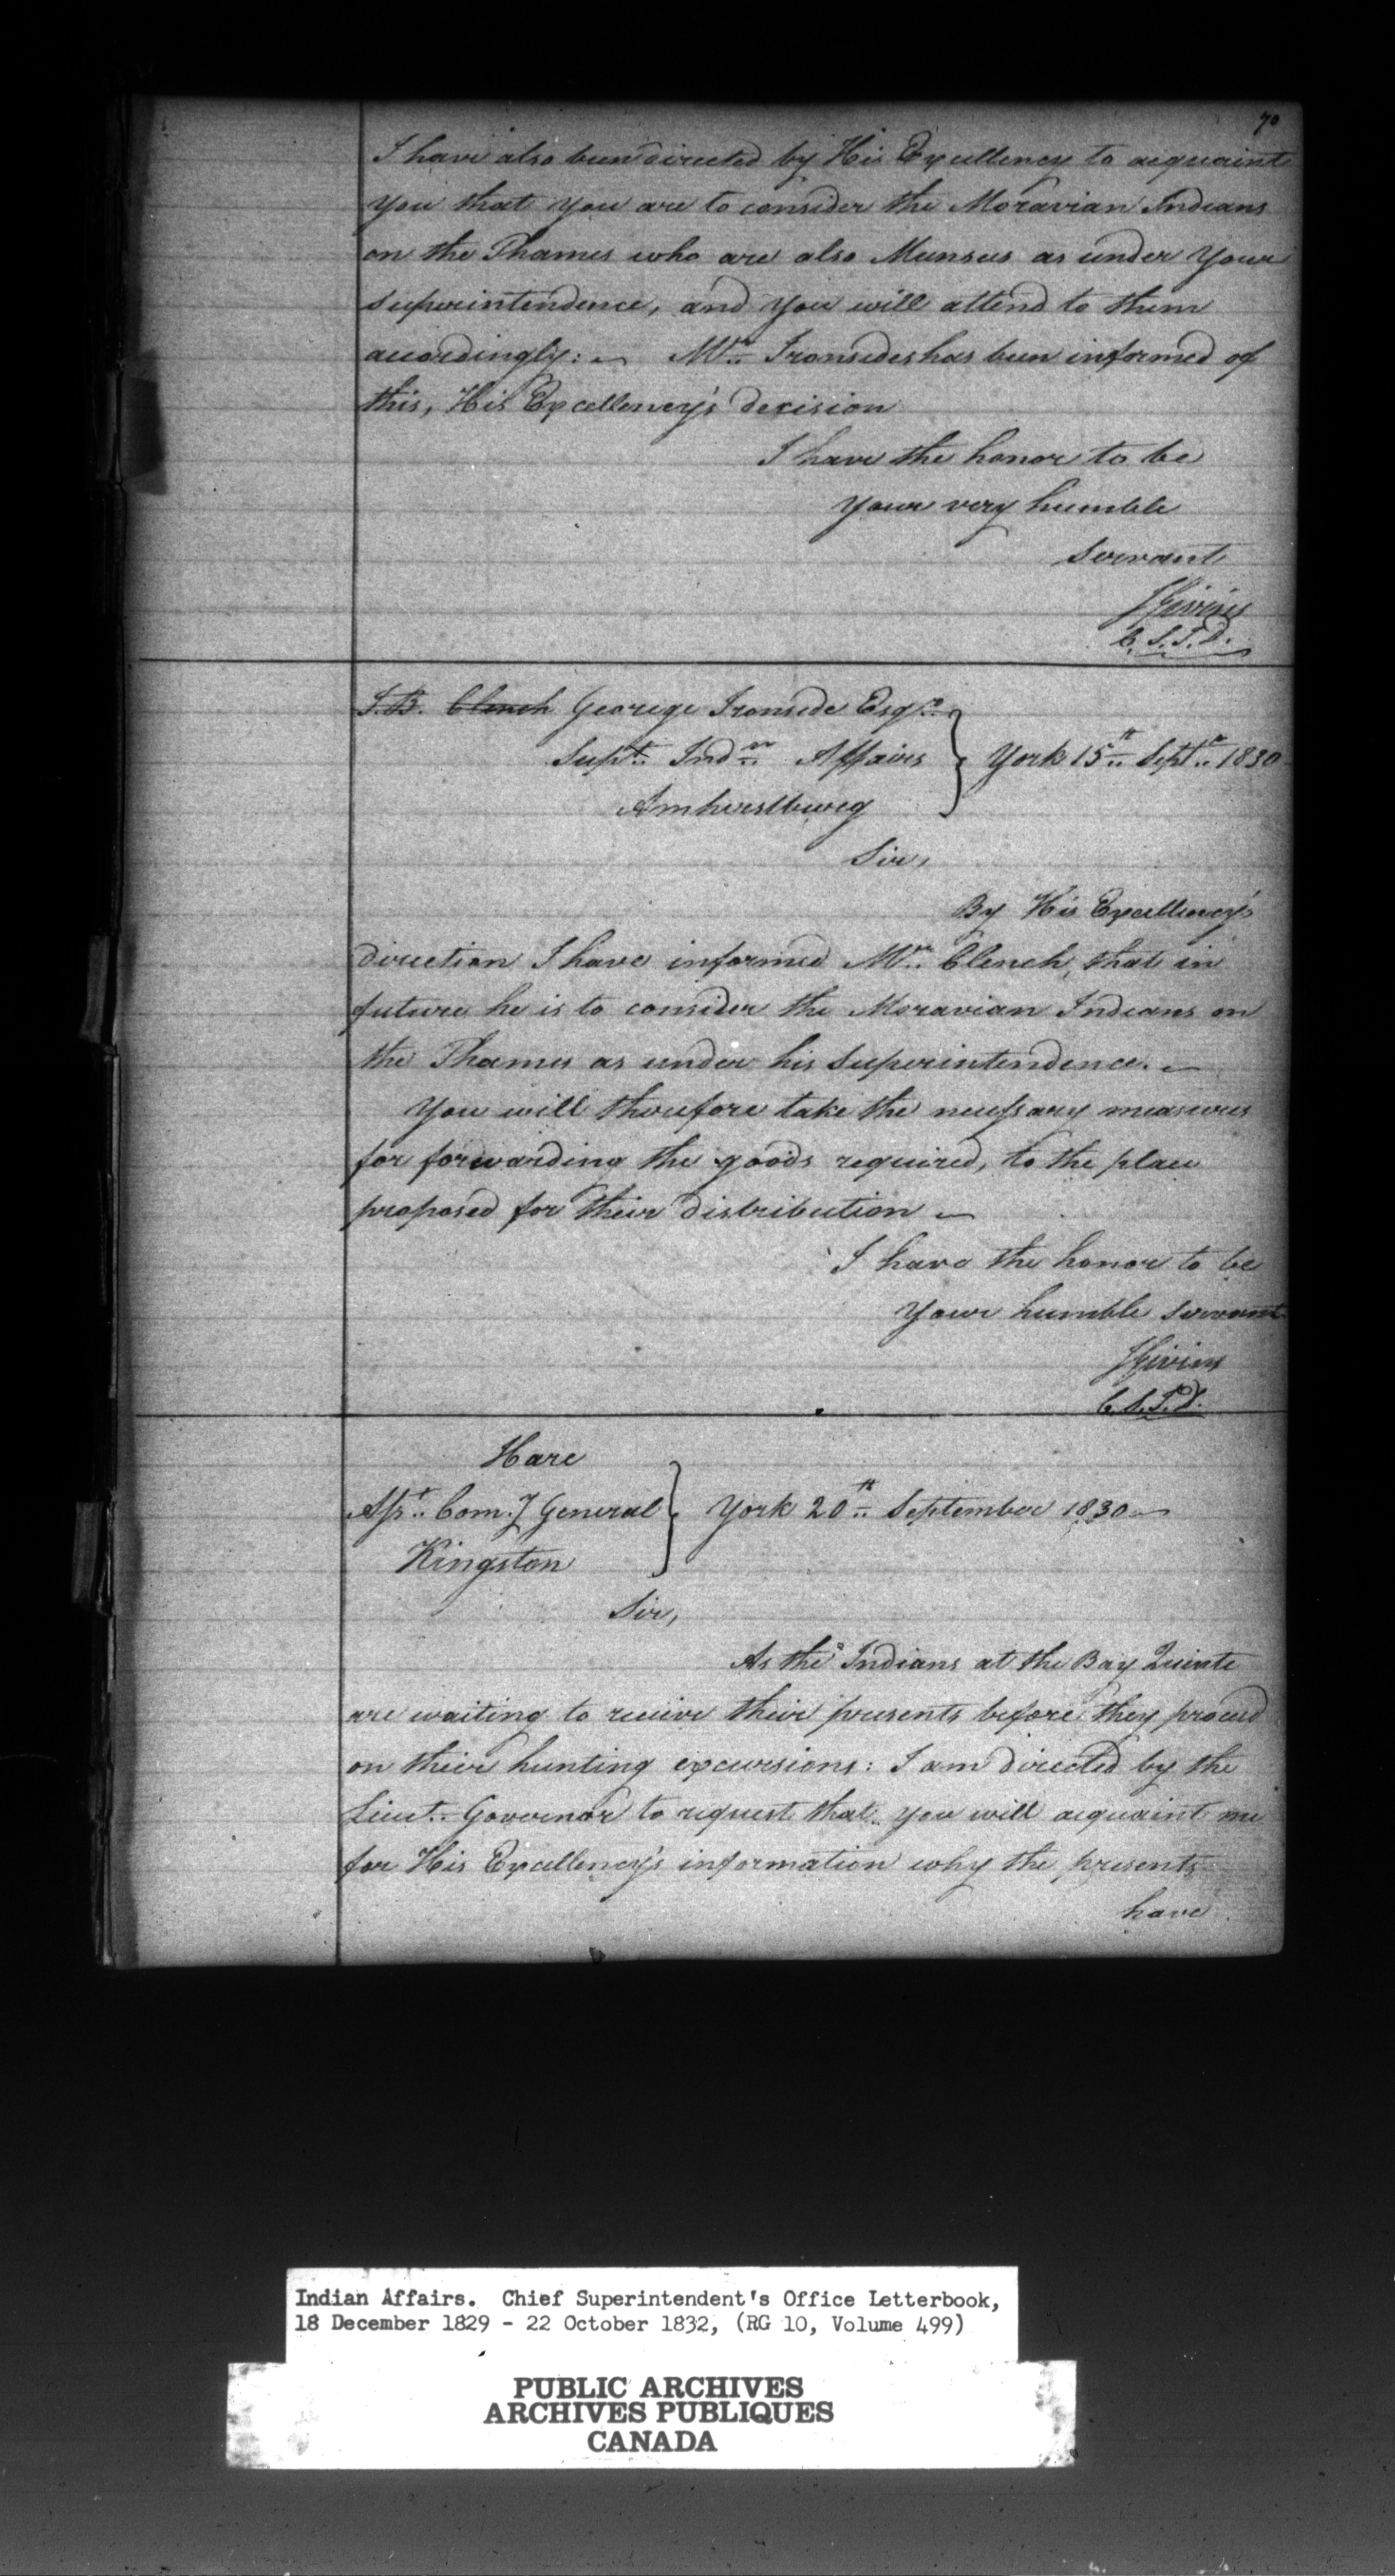 70
I have also been directed by His Excellency to acquaint
you that you are to consider the Moravian Indians
on the Thames who are also Munsees as under your
superintendence, and you will attend to them
accordingly: — Mr. Ironsides has been informed of
this, His Excellency's decision
I have the honor to be
Your very humble
servant
J Givins
C. S. I. D.
J. B. Clench George Ironside Esqre.
Supt. Indn. Affairs
York 15th Septr. 1830
Amherstburg
Sir,
By His Excellency's
direction I have informed Mr. Clench, that in
future he is to consider the Moravian Indians on
the Thames as under his superintendence. —
You will therefore take the necessary measures
for forwarding the goods required, to the place
proposed for their distribution —
I have the honor to be
Your humble servant
J Givins
C. S. I. D.
Hare
Asst. Comy General
York 20th September 1830 —
Kingston
Sir,
As the Indians at the Bay Quinte
are waiting to receive their presents before they proceed
on their hunting excursions: I am directed by the
Lieut. Governor to request that you will acquaint me
for His Excellency's information why the presents
have
Indian Affairs. Chief Superintendent's Office Letterbook,
18 December 1829 - 22 October 1832, (RG 10, Volume 499)
PUBLIC ARCHIVES
ARCHIVES PUBLIQUES
CANADA